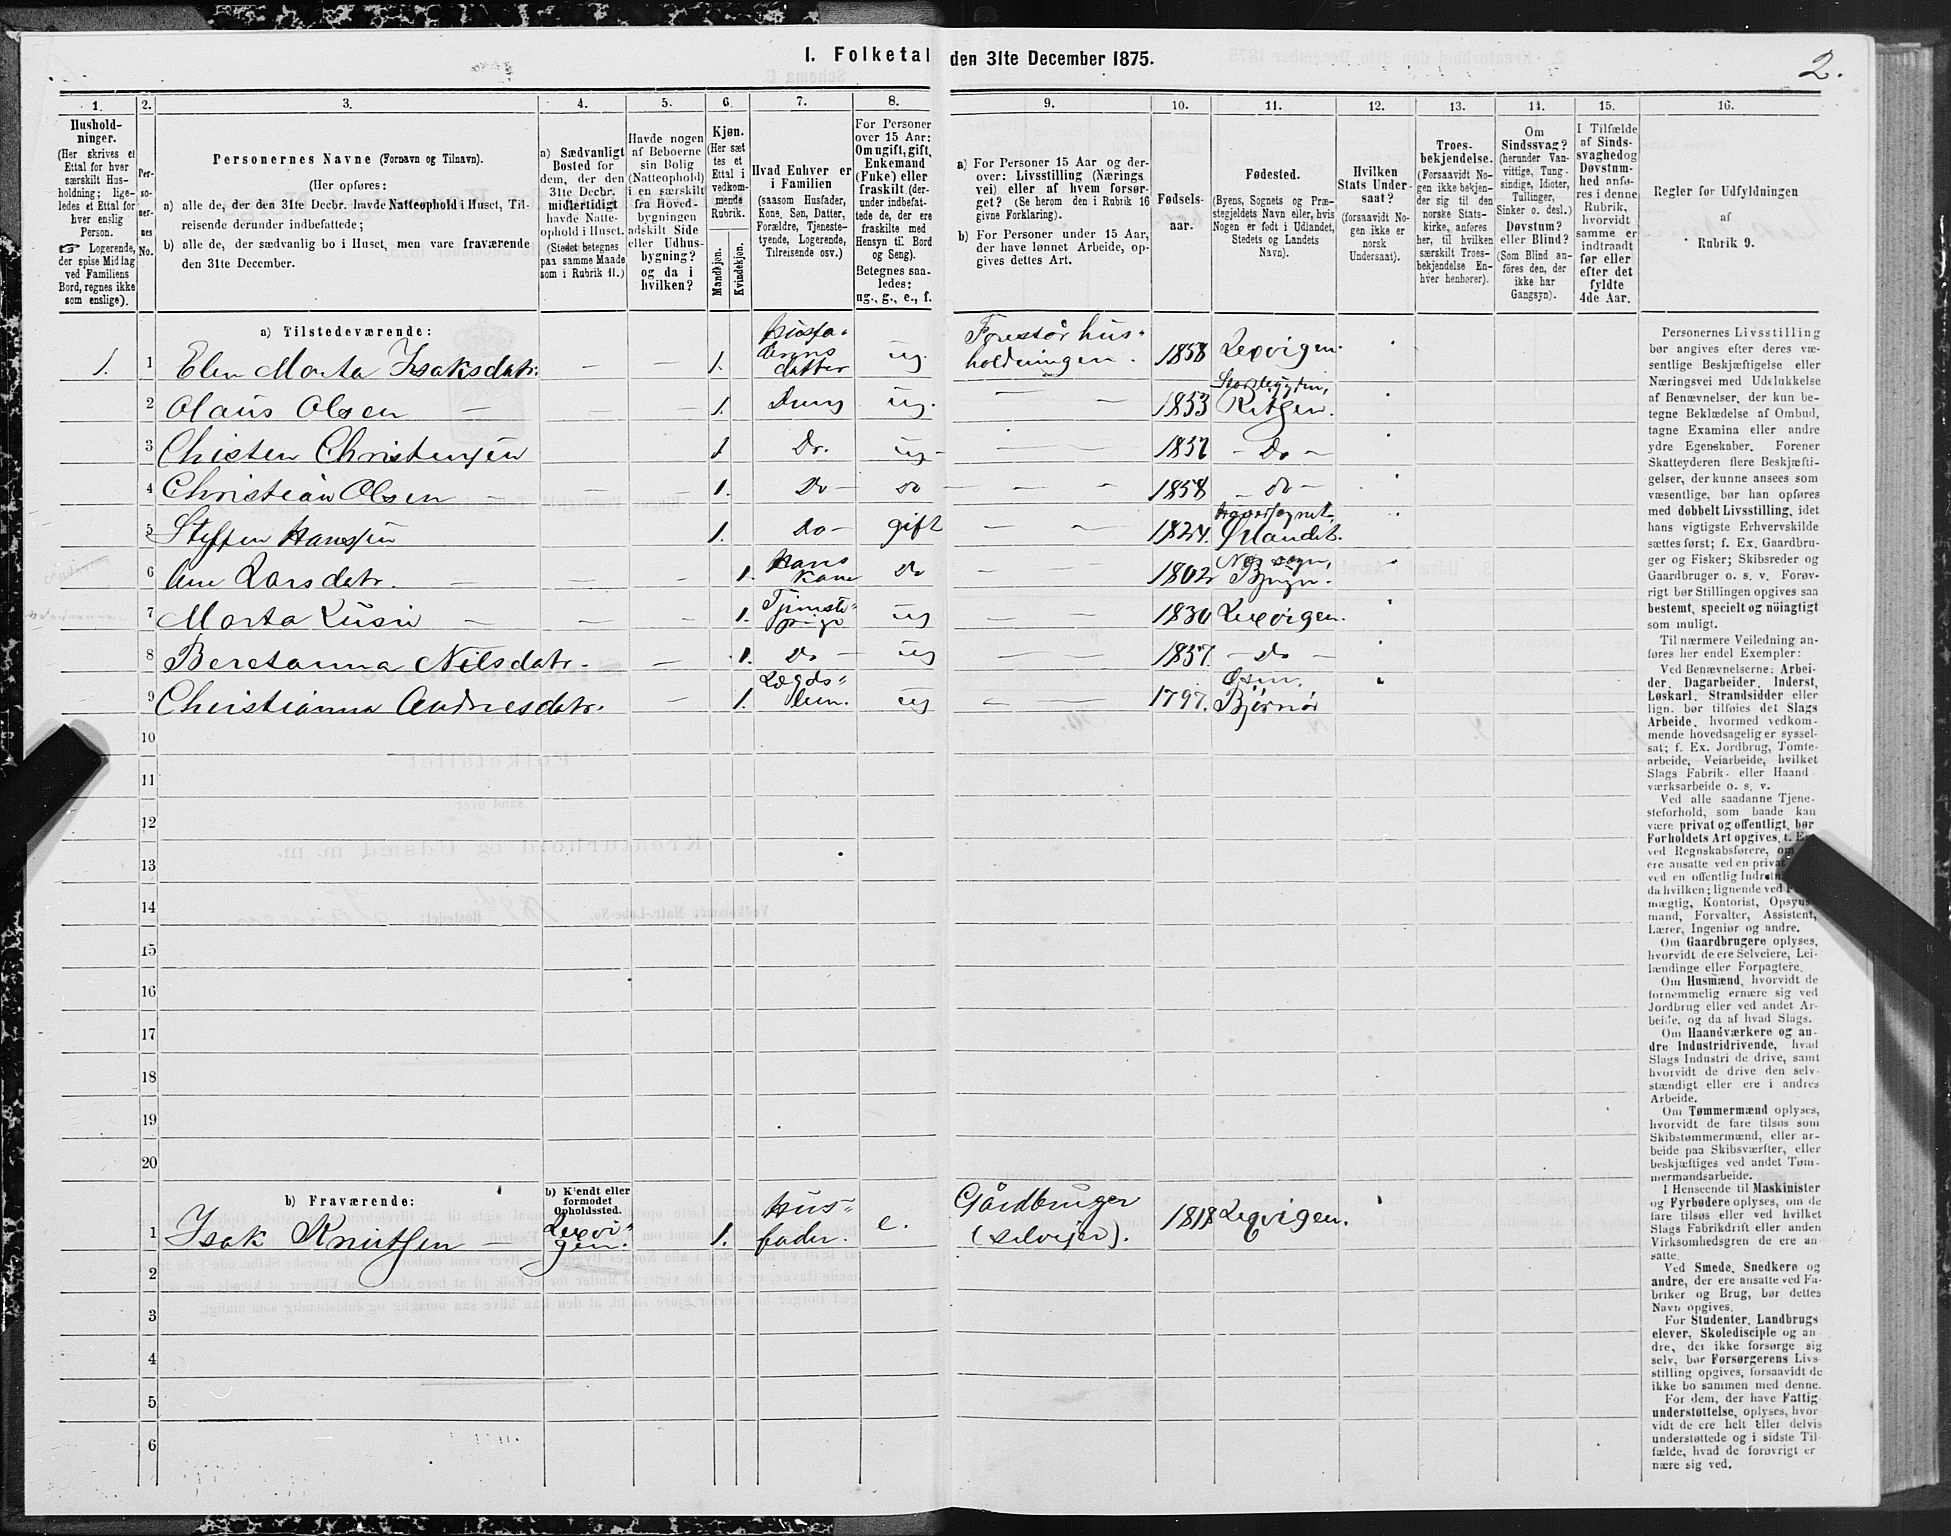 I. Folketal den 31te December 1875.
2.
1. 2. 3. 4. 5. 6. 7. 8. 9. 10. 11. 12. 13. 14. 15. 16.
Hushold-
ninger.
(Her skrives et
Ettal for hver
særskilt Hus-
holdning; lige-
ledes et Ettal for
hver enslig
Person.
Logerende,
der spise Middag
ved Familiens
Bord, regnes ikke
som enslige).
Per-
so-
ner-
nes
No.
Personernes Navne (Fornavn og Tilnavn).
(Her opføres:
a) alle de, der den 31te Decbr. havde Natteophold i Huset, Til-
reisende derunder indbefattede;
b) alle de, der sædvanlig bo i Huset, men vare fraværende
den 31te December.
a) Sædvanligt
Bosted for
dem, der den
31te Decbr.
midlertidigt
havde Natte-
ophold i Huset.
(Stedet betegnes
paa samme Maade
som i Rubrik 11.)
Havde nogen
af Beboerne
sin Bolig
(Natteophold)
i en særskilt
fra Hoved-
bygningen
adskilt Side
eller Udhus-
bygning?
og da i
hvilken?
Kjøn.
(Her sæt
tes et
Ettal i
vedkom-
mende
Rubrik.
Mandkjøn.
Kvindekjøn.
Hvad Enhver er
i Familien
(saasom Husfader,
Kone, Søn, Datter,
Forældre, Tjeneste-
tyende, Logerende,
Tilreisende osv.)
For Personer
over 15 Aar:
Om ugift, gift,
Enkemand
(Enke) eller
fraskilt (der-
under indbefat-
tede de, der ere
fraskilte med
Hensyn til Bord
og Seng).
Betegnes saa-
ledes:
ug., g., e., f.
a) For Personer 15 Aar og der-
over: Livsstilling (Nærings
vei) eller af hvem forsør-
get? (Se herom den i Rubrik 16
givne Forklaring).
b) For Personer under 15 Aar,
der have lønnet Arbeide, op-
gives dettes Art.
Fødsels-
aar.
Fødested.
(Byens, Sognets og Præ-
stegjeldets Navn eller, hvis
Nogen er født i Udlandet,
Stedets og Landets
Navn).
Hvilken
Stats Under-
saat?
(forsaavidt No-
gen ikke er
norsk
Undersaat).
Troes-
bekjendelse.
(Forsaavidt No-
gen ikke bekjen-
der sig til den
norske Stats-
kirke, anføres
her, til hvilken
særskilt Troes-
bekjendelse En-
hver henhører).
Om
Sindssvag?
(herunder Van-
vittige, Tung-
sindige, Idioter,
Tullinger,
Sinker o. desl.)
Døvstum?
eller Blind?
(Som Blind an-
føres den, der
ikke har
Gangsyn).
I Tilfælde
af Sinds-
svaghed og
Døvstum-
hed anfø-
res i denne
Rubrik,
hvorvidt
samme er
indtraadt
før eller
efter det
fyldte
4de Aar.
Regler for Udfyldningen
af
Rubrik 9.
a) Tilstedeværende:
1. 1 Elen Marta Isaksdatr. — — 1. Husfa-
derens
datter ug. Forestår hus-
holdningen. 1858 Lexvigen.
2 Olaus Olsen — — — 1. Dreng ug. — — 1853 Ritsen.
3 Chisten Christensen — — 1 Do. ug — — 1857 — Do —
4 Christian Olsen — — — 1. Do — do — — 1858 — do —
5 Steffen Hansen 1. Do — gift — — 1824. Ørlandet.
6 Ane Larsdatr. — — — 1. Hans
Kone Do — — 1802 Bjugn.
7 Marta Lusie — — — 1. Tjeneste-
pige ug — — 1830 Lexvigen.
8 Beretanna Nilsdatr. — — 1. Do — ug — — 1857. — Do —
9 Christianna Andresdatr. — 1. Lægds-
lem. ug — — 1797. Osen.
Bjørnør
10
11
12
13
14
15
16
17
18
19
20
b) Fraværende:
b) Kjendt eller
formodet
Opholdssted.
1 Isak Knutsen — Lexvi-
gen. 1. Hus-
fader. e. Gårdbruger
(selveier). 1818 Lexvigen.
2
3
4
5
6
Personernes Livsstilling
bør angives efter deres væ-
sentlige Beskjæftigelse eller
Næringsvei med Udelukkelse
af Benævnelser, der kun be-
tegne Beklædelse af Ombud,
tagne Examina eller andre
ydre Egenskaber. Forener
Skatteyderen flere Beskjæfti-
gelser, der kunne ansees som
væsentlige, bør han opføres
med dobbelt Livsstilling, idet
hans vigtigste Erhvervskilde
sættes først; f. Ex. Gaardbru-
ger og Fisker; Skibsreder og
Gaardbruger o. s. v. Forøv-
rigt bør Stillingen opgives saa
bestemt, specielt og nöiagtigt
som muligt.
Til nærmere Veiledning an-
føres her endel Exempler:
Ved Benævnelserne: Arbei-
der, Dagarbeider, Inderst,
Løskarl, Strandsidder eller
lign. bør tilføies det Slags
Arbeide, hvormed vedkom-
mende hovedsagelig er syssel-
sat; f. Ex. Jordbrug, Tomte-
arbeide, Veiarbeide, hvilket
Slags Fabrik- eller Haand-
værksarbeide o. s. v.
Ved alle saadanne Tjene-
steforhold, som baade kan
være privat og offentligt, bør
Forholdets Art opgives,
ved Regnskabsførere,
ere ansatte ved en privat
ved en offentlig
da hvilken; lignende ved
mægtig, Kontorist,
mand, Forvalter, Assistent,
Lærer, Ingeniør og andre.
Om Gaardbrugere oplyses,
hvorvidt de ere Selveiere, Lei-
lændinge eller Forpagtere.
Om Husmænd, hvorvidt de
fornemmelig ernære sig ved
Jordbrug eller ved andet Ar-
beide, og da af hvad Slags.
Om Haandværkere og an-
dre Industridrivende, hvad
Slags Industri de drive, samt
hvorvidt de drive den selv-
stændigt eller ere i andres
Arbeide.
Om Tømmermænd oplyses,
hvorvidt de fare tilsøs som
Skibstømmermænd, eller ar-
beide paa Skibsværfter, eller
beskjæftiges ved andet Tøm-
mermandsarbeide.
I Henseende til Maskinister
og Fyrbødere oplyses, om de
fare tilsøs eller ved hvilket
Slags Fabrikdrift eller anden
Virksomhedsgren de ere an-
satte.
Ved Smede, Snedkere og
andre, der ere ansatte ved Fa-
briker og Brug, bør dettes
Navn opgives.
For Studenter, Landbrugs
elever, Skoledisciple og an
dre, der ikke forsørge sig
selv, bør Forsørgerens Livs-
stilling opgives, forsaavidt de
ikke bo sammen med denne.
For dem, der have Fattig
understøttelse, oplyses, hvor-
vidt de ere helt eller delvis
understøttede og i sidste Til-
fælde, hvad de forøvrigt er
nære sig ved.